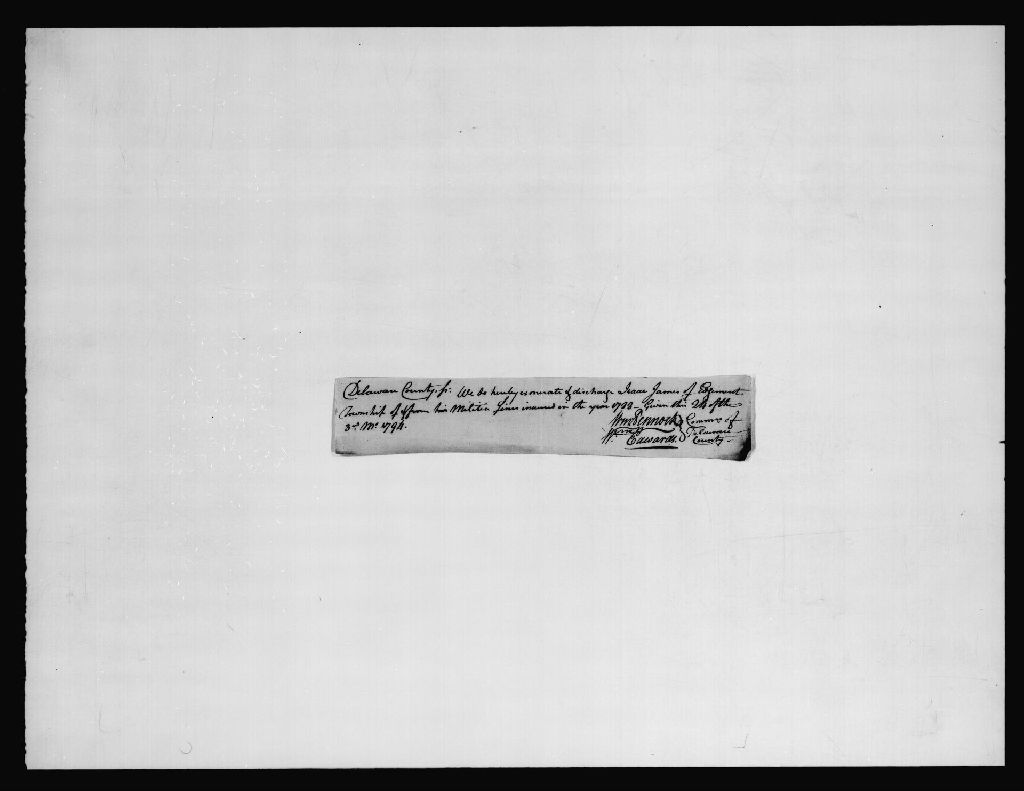 Delaware County, ss. We do hereby exonerate & discharge Isaac James of Edgemont
Township of & from his Militia fines incurred in the year 1792. Given this 28 of the
3rd Mo. 1794.
Wm Pennock } Commrs of
Edwards. Delaware
County